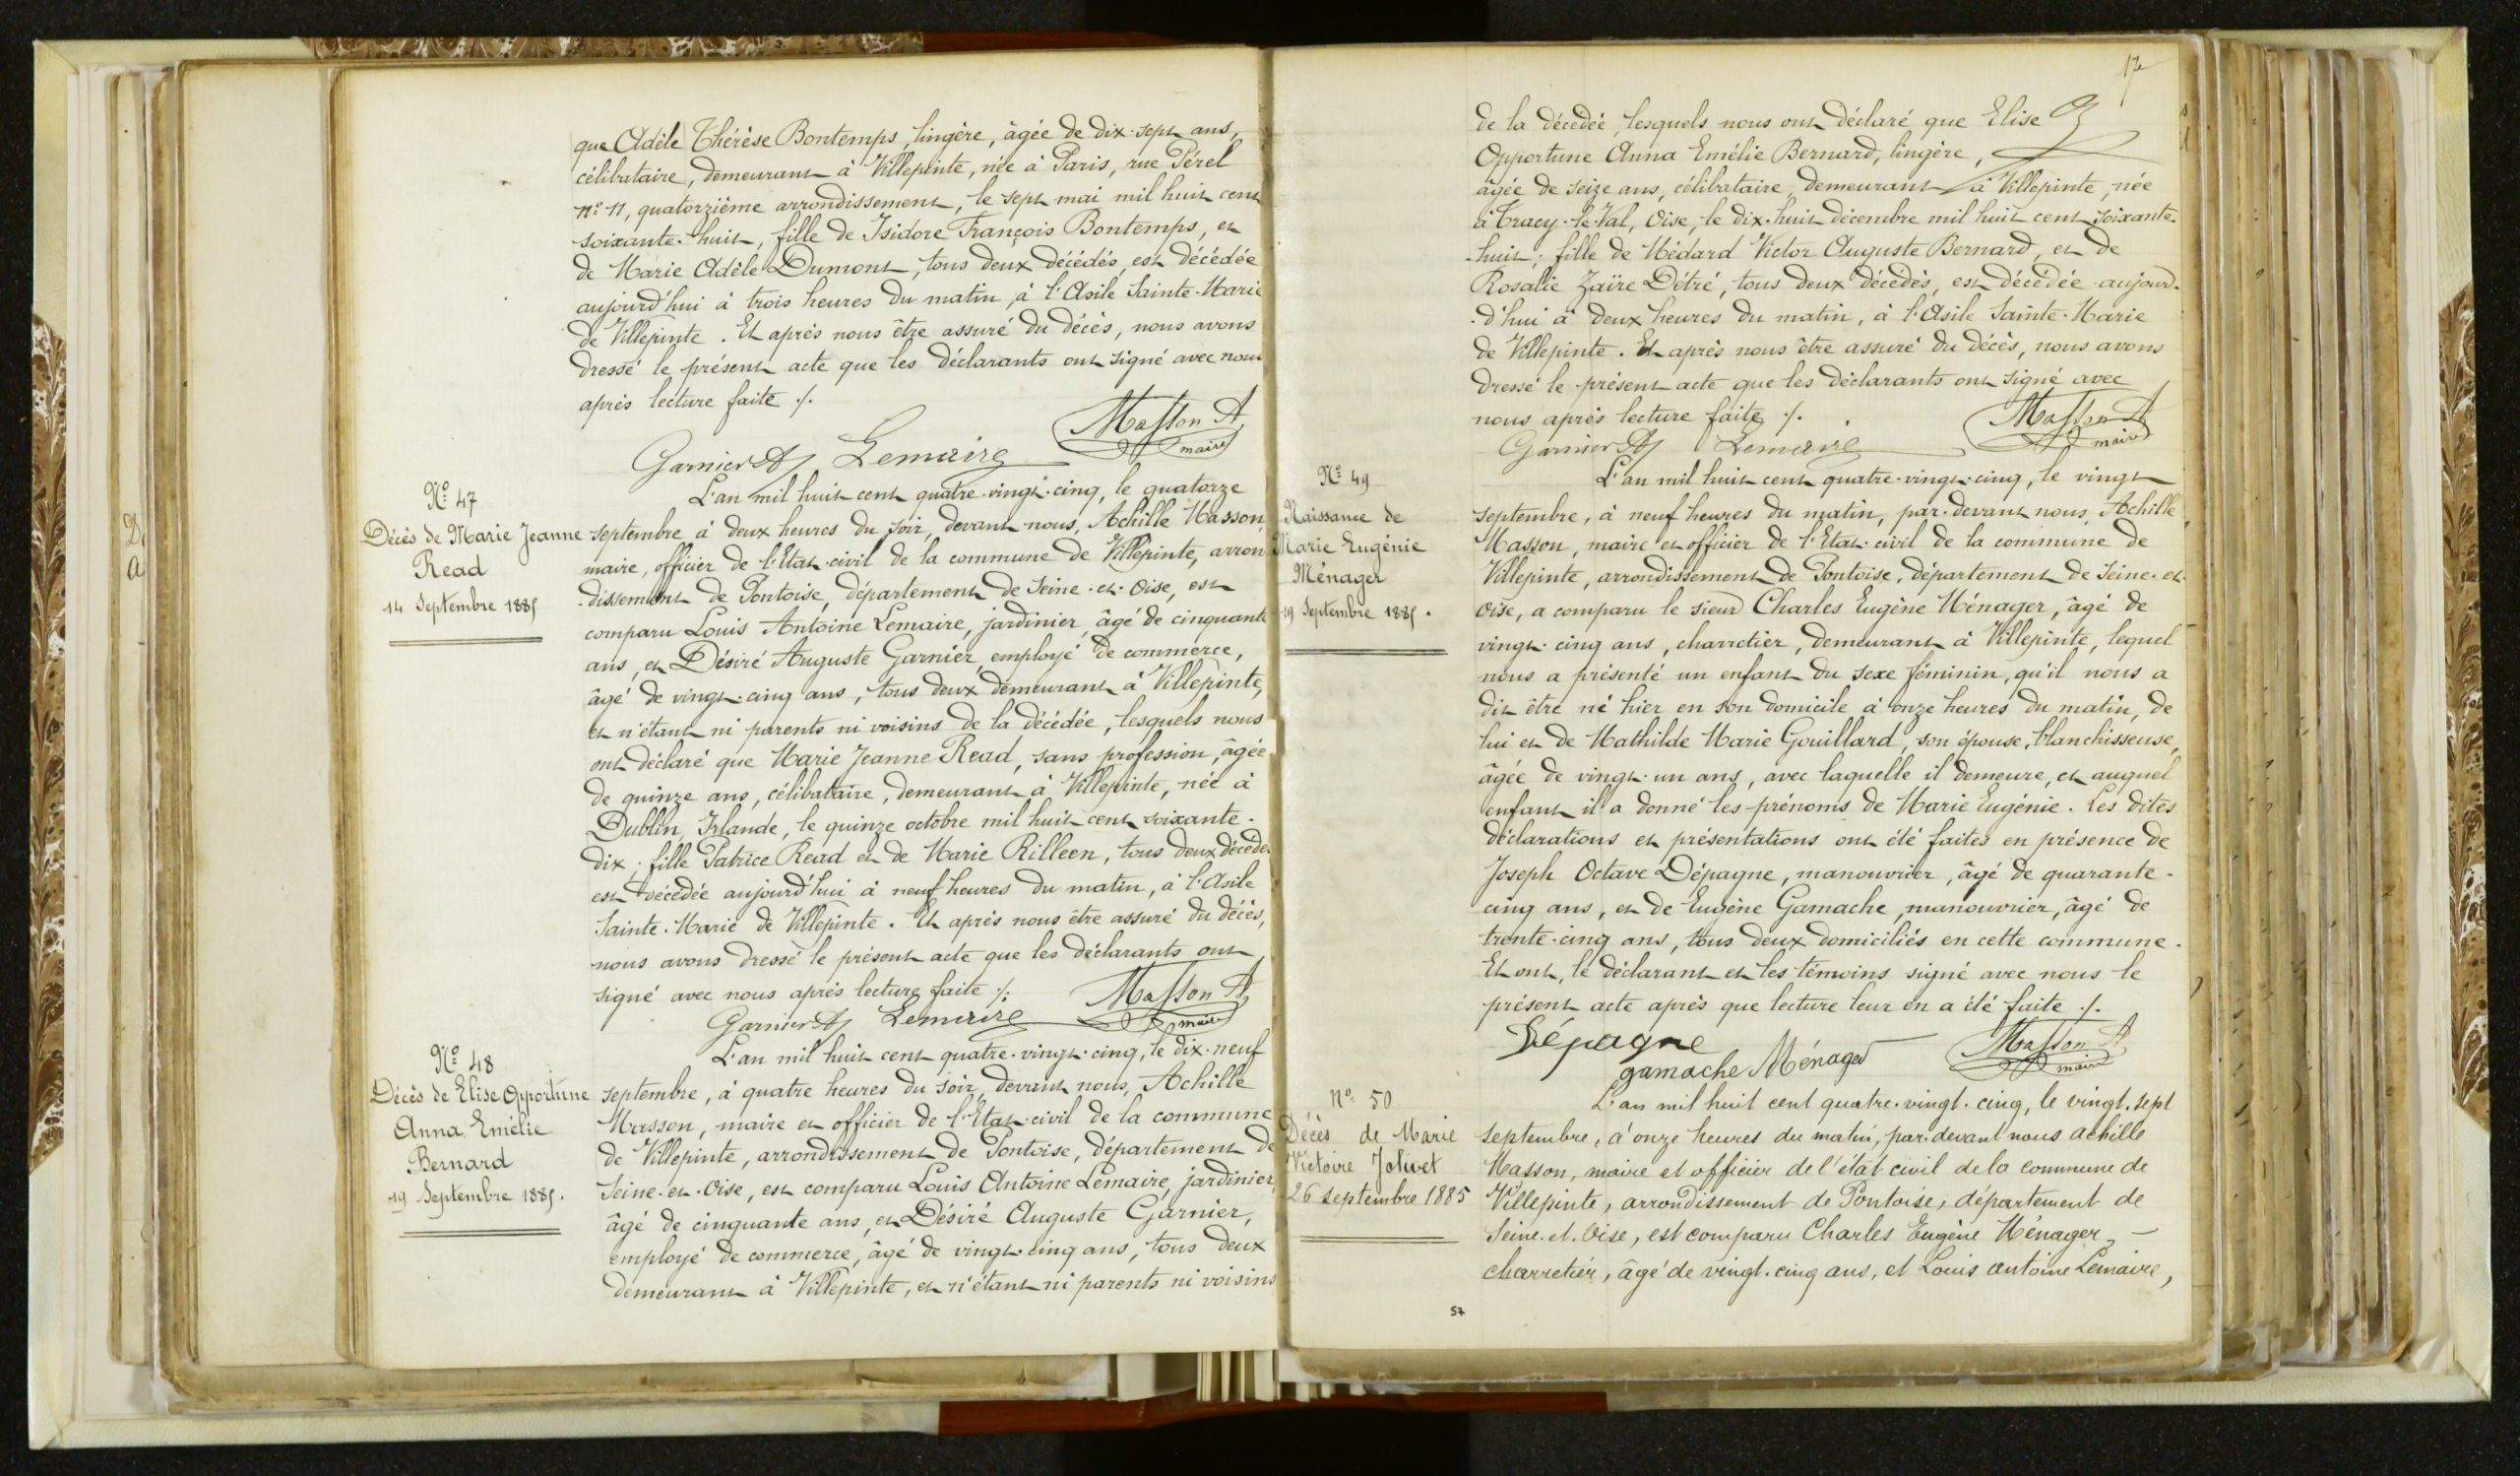 que Adèle Thérèse Bontemps, lingère, âgée de dix-sept ans,
célibataire, demeurant à Villepinte, née à Paris, rue Pérel
n.º 11, quatorzième arrondissement, le sept mai mil huit cent
soixante-huit, fille de Isidore François Bontemps, et
de Marie Adèle Dumont, tous deux décédés, est décédée
aujourd'hui à trois heures du matin, à l'Asile Sainte-Marie
de Villepinte. Et après nous être assuré du décès, nous avons
dressé le présent acte que les déclarants ont signé avec nous
après lecture faite ./.
Garnier Lemaire Masson A
maire
Nº 47
Décès de Marie Jeanne
Read
14 Septembre 1885
L'an mil huit cent quatre-vingt-cinq, le quatorze
septembre à deux heures du soir, devant nous, Achille Masson,
maire, officier de l'Etat-civil de la commune de Villepinte, arron
-dissement de Pontoise, département de Seine-et-Oise, est
comparu Louis Antoine Lemaire, jardinier, âgé de cinquante
ans, et Désiré Auguste Garnier, employé de commerce,
âgé de vingt-cinq ans, tous deux demeurant à Villepinte,
et n'étant ni parents ni voisins de la décédée, lesquels nous
ont déclaré que Marie Jeanne Read, sans profession, âgée
de quinze ans, célibataire, demeurant à Villepinte, née à
Dublin, Irlande, le quinze octobre mil huit cent soixante-
dix; fille Patrice Read et de Marie Rilleen, tous deux décédés
est décédée aujourd'hui à neuf heures du matin, à l'Asile
Sainte-Marie de Villepinte. Et après nous être assuré du décès,
nous avons dressé le présent acte que les déclarants ont
signé avec nous après lecture faite ./.
Garnier Lemaire Masson A
maire
Nº 48
Décès de Elise Opportune
Anna Emélie
Bernard
19 Septembre 1885.
L'an mil huit cent quatre-vingt-cinq, le dix-neuf
septembre, à quatre heures du soir, devant nous, Achille
Masson, maire et officier de l'Etat-civil de la commune
de Villepinte, arrondissement de Pontoise, département de
Seine-et-Oise, est comparu Louis Antoine Lemaire, jardinier,
âgé de cinquante ans, et Désiré Auguste Garnier,
employé de commerce, âgé de vingt-cinq ans, tous deux
demeurant à Villepinte, et n'étant ni parents ni voisins
17
de la décédée, lesquels nous ont déclaré que Elise
Opportune Anna Emélie Bernard, lingère,
âgée de seize ans, célibataire, demeurant à Villepinte, née
à Tracy-le-Val, Oise, le dix-huit décembre mil huit cent soixante-
-huit; fille de Médard Victor Auguste Bernard, et de
Rosalie Zaïre Détré, tous deux décédés, est décédée aujourd-
-d'hui à deux heures du matin, à l'Asile Sainte-Marie
de Villepinte. Et après nous être assuré du décès, nous avons
dressé le présent acte que les déclarants ont signé avec
nous après lecture faite ./.
Garnier Lemaire Masson A
maire
Nº 49
Naissance de
Marie Eugénie
Ménager
19 Septembre 1885.
L'an mil huit cent quatre-vingt-cinq, le vingt
septembre, à neuf heures du matin, par-devant nous, Achille
Masson, maire et officier de l'Etat-civil de la commune de
Villepinte, arrondissement de Pontoise, département de Seine-et-
Oise, a comparu le sieur Charles Eugène Ménager, âgé de
vingt-cinq ans, charretier, demeurant à Villepinte, lequel
nous a présenté un enfant du sexe féminin, qu'il nous a
dit être né hier en son domicile à onze heures du matin, de
lui et de Mathilde Marie Gouillard, son épouse, blanchisseuse,
âgée de vingt-un ans, avec laquelle il demeure, et auquel
enfant il a donné les prénoms de Marie Eugénie. Les dites
déclarations et présentations ont été faites en présence de
Joseph Octave Dépagne, manouvrier, âgé de quarante-
cinq ans, et de Eugène Gamache, manouvrier, âgé de
trente-cinq ans, tous deux domiciliés en cette commune.
Et ont, le déclarant et les témoins signé avec nous le
présent acte après que lecture leur en a été faite ./.
Dépagne
gamache Ménager Masson A
maire
Nº 50
Décès de Marie
Victoire Jolivet
26 septembre 1885
L'an mil huit cent quatre-vingt-cinq, le vingt-sept
septembre, à onze heures du matin, par-devant nous Achille
Masson, maire et officier de l'état civil de la commune de
Villepinte, arrondissement de Pontoise, département de
Seine-et-Oise, est comparu Charles Eugène Ménager,
charretier, âgé de vingt-cinq ans, et Louis Antoine Lemaire,
57